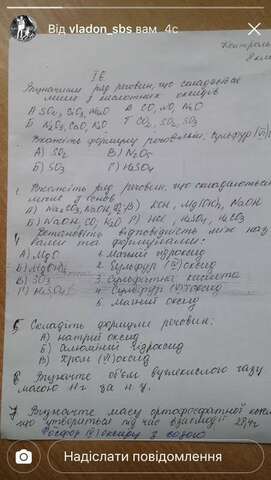 Від vladon_sbs вам 4с
Контроль
8 клас
І В
Визначити ряд речовин, що складається
лише з кислотних оксидів
А SO₂, CO₂, В CO, NO, N₂O
Б K₂O, CaO, Г CO₂, SO₂, SO₃
Вкажіть формулу речовини: Сульфур
А) SO₂ В) N₂O₅
Б) SO₃ Г) H₂SO₄
Вкажіть ряд речовин, що складаються
лише з основ
А) Na₂CO₃, NaOH, В) KOH, Mg(OH)₂, NaOH
Б) NaOH, CO, Г) HCl, H₂SO₄, H₂CO₃
Установіть відповідність між
та формулами:
А) MgO 1. Магній гідроксид
Б) Mg(OH)₂ 2. Сульфур оксид
В) SO₃ 3. Сульфатна кислота
Г) H₂SO₄ 4. Сульфур оксид
5. Магній оксид
5 Складіть формули речовин:
А) натрій оксид
Б) алюміній гідроксид
В) Хром оксид
Визначте об'єм вуглекислого газу
масою за н. у.
7 Визначте масу ортофосфатної
що утвориться під час взаємодії 28,4г
Фосфор оксиду з водою
Надіслати повідомлення